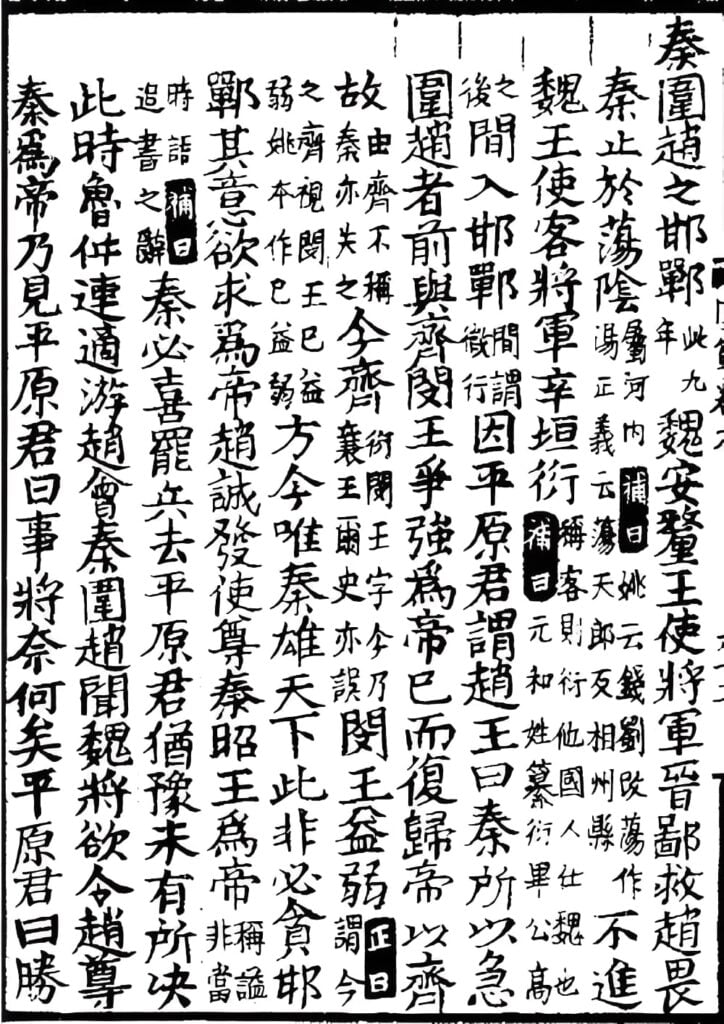 秦圍趙之邯鄲此九年魏安釐王使將軍晉鄙救趙畏
秦止於蕩陰屬河內補曰姚云錢劉改蕩作湯正義云蕩天郎反相州縣不進
魏王使客將軍辛垣衍補曰稱客則衍他國人仕魏也元和姓纂衍畢公高
之後間入邯鄲間謂微行因平原君謂趙王曰秦所以急
圍趙者前與齊閔王爭強爲帝已而復歸帝以齊
故由齊不稱故秦亦失之今齊衍閔王字今乃襄王爾史亦誤閔王益弱正曰謂今
之齊視閔王已益弱姚本作已益弱方今唯秦雄天下此非必貪邯
鄲其意欲求爲帝趙誠發使尊秦昭王爲帝稱謚非當
時語補曰追書之辭秦必喜罷兵去平原君猶豫未有所決
此時魯仲連適游趙會秦圍趙聞魏將欲令趙尊
秦爲帝乃見平原君曰事將奈何矣平原君曰勝